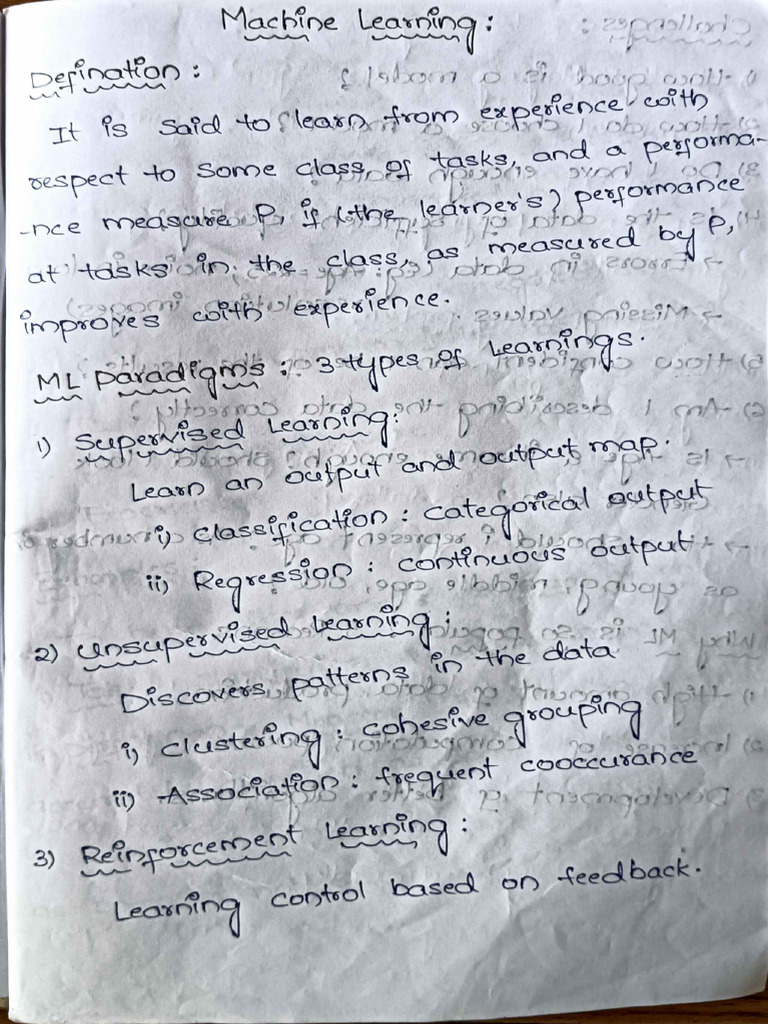 Machine Learning :
Defination :
It is said to learn from experience with
respect to some class of tasks, and a performa-
-nce measure P, if (the learner's) performance
at tasks in the class, as measured by P,
improves with experience.
ML Paradigms : 3 types of Learnings.
1) Supervised Learning:
Learn an output and output map.
i) Classification : categorical output
ii) Regression : continuous output
2) Unsupervised Learning :
Discovers patterns in the data
i) Clustering : cohesive grouping
ii) Association : frequent cooccurance
3) Reinforcement Learning :
Learning control based on feedback.